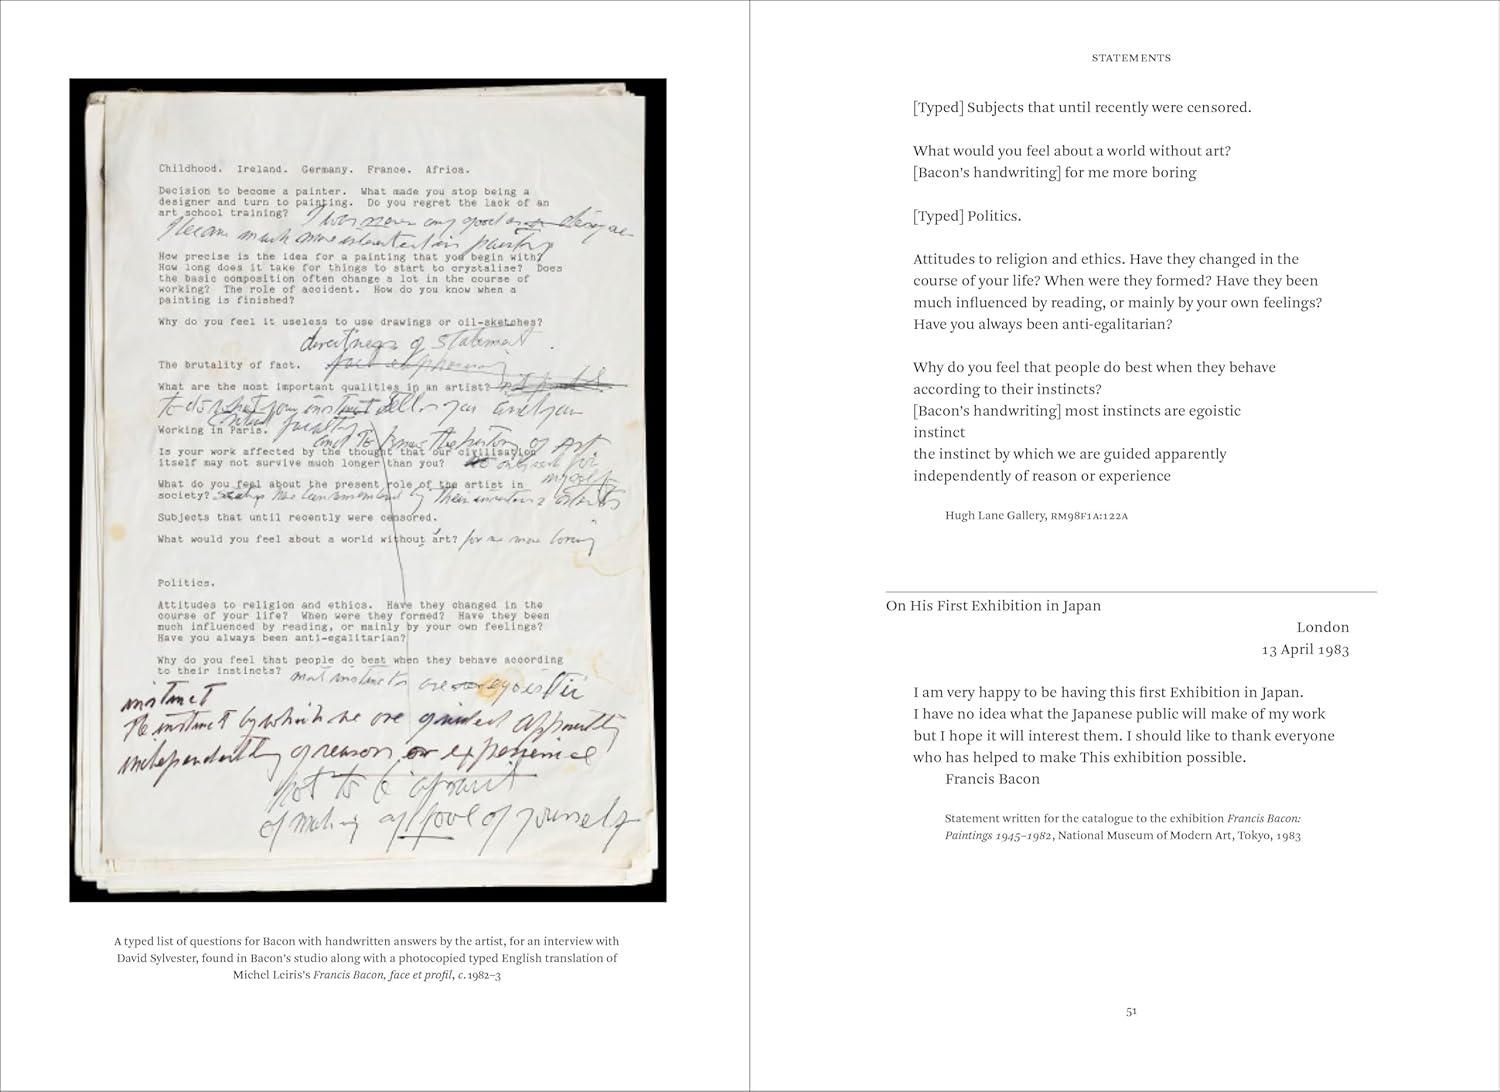 Childhood. Ireland. Germany. France. Africa.
Decision to become a painter. What made you stop being a
designer and turn to painting. Do you regret the lack of an
art school training? I was never any good
I became much more interested in painting
How precise is the idea for a painting that you begin with?
How long does it take for things to start to crystalise? Does
the basic composition often change a lot in the course of
working? The role of accident. How do you know when a
painting is finished?
Why do you feel it useless to use drawings or oil-sketches?
directness of statement.
The brutality of fact.
What are the most important qualities in an artist?
to do what your instinct tells you and your
critical faculty
Working in Paris.
and to know the history of Art
Is your work affected by the thought that our civilisation
itself may not survive much longer than you? only work for
myself
What do you feel about the present role of the artist in
society? has been remembered by their artists
Subjects that until recently were censored.
What would you feel about a world without art? for me more boring
Politics.
Attitudes to religion and ethics. Have they changed in the
course of your life? When were they formed? Have they been
much influenced by reading, or mainly by your own feelings?
Have you always been anti-egalitarian?
Why do you feel that people do best when they behave according
to their instincts? most instincts are egoistic
instinct
the instinct by which we are guided apparently
independently of reason or experience
not to be afraid
of making a fool of yourself
A typed list of questions for Bacon with handwritten answers by the artist, for an interview with
David Sylvester, found in Bacon's studio along with a photocopied typed English translation of
Michel Leiris's Francis Bacon, face et profil, c. 1982–3
STATEMENTS
[Typed] Subjects that until recently were censored.
What would you feel about a world without art?
[Bacon's handwriting] for me more boring
[Typed] Politics.
Attitudes to religion and ethics. Have they changed in the
course of your life? When were they formed? Have they been
much influenced by reading, or mainly by your own feelings?
Have you always been anti-egalitarian?
Why do you feel that people do best when they behave
according to their instincts?
[Bacon's handwriting] most instincts are egoistic
instinct
the instinct by which we are guided apparently
independently of reason or experience
Hugh Lane Gallery, RM98F1A:122A
On His First Exhibition in Japan
London
13 April 1983
I am very happy to be having this first Exhibition in Japan.
I have no idea what the Japanese public will make of my work
but I hope it will interest them. I should like to thank everyone
who has helped to make This exhibition possible.
Francis Bacon
Statement written for the catalogue to the exhibition Francis Bacon:
Paintings 1945–1982, National Museum of Modern Art, Tokyo, 1983
51